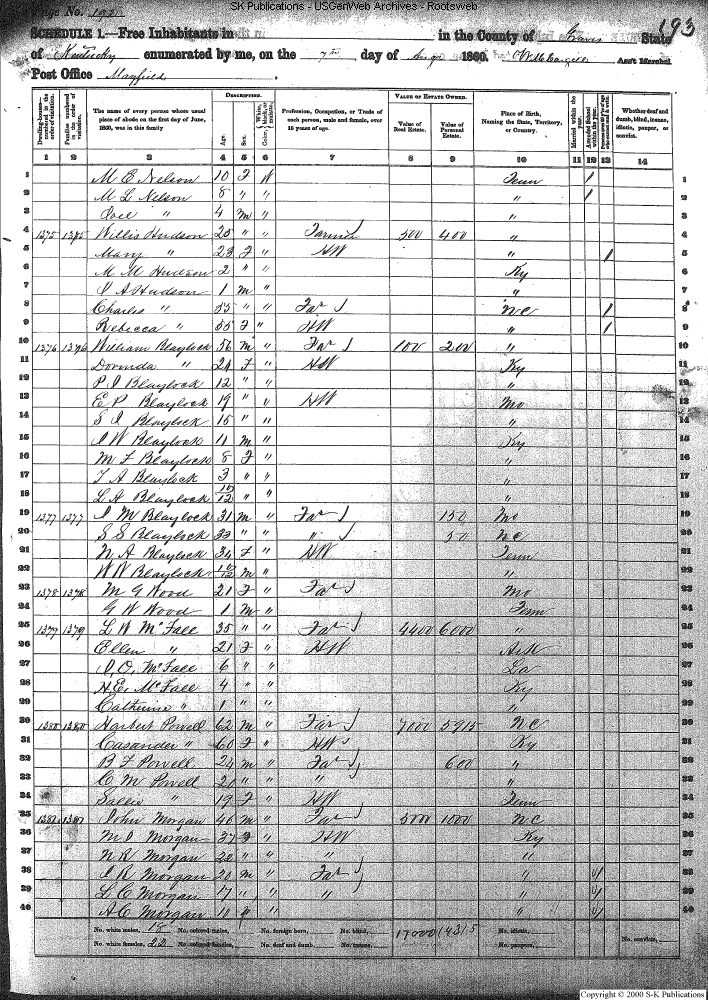 SK Publications - USGenWeb Archives - Rootsweb
Page No. 193
SCHEDULE 1.—Free Inhabitants in in the County of Graves State
of Kentucky enumerated by me, on the 7th day of 1860. Ass't Marshal
Post Office Mayfield
Dwelling-houses—numbered in the order of visitation.
Families numbered in the order of visitation.
The name of every person whose usual place of abode on the first day of June, 1860, was in this family
DESCRIPTION.
Age.
Sex.
Color, White, black, or mulatto.
Profession, Occupation, or Trade of each person, male and female, over 15 years of age.
VALUE OF ESTATE OWNED.
Value of Real Estate.
Value of Personal Estate.
Place of Birth, Naming the State, Territory, or Country.
Married within the year.
Attended School within the year.
Whether deaf and dumb, blind, insane, idiotic, pauper, or convict.
1 2 3 4 5 6 7 8 9 10 11 12 13 14
1 M E Nelson 10 F W Tenn / 1
2 M L Nelson 8 " " " / 2
3 " 4 m " " 3
4 1375 1375 Willis Hudson 25 " " Farmer 500 400 " 4
5 Mary " 23 F " HW " / 5
6 M M Hudson 2 " " Ky 6
7 A Hudson 1 m " " 7
8 Charles " 55 " " Far NC / 8
9 Rebecca " 55 F " HW " / 9
10 1376 1376 William Blaylock 56 m " Far 100 200 " 10
11 Dorinda " 24 F " HW Ky 11
12 P J Blaylock 12 " " " 12
13 E P Blaylock 19 " " HW Mo 13
14 S J Blaylock 15 " " " 14
15 J W Blaylock 11 m " Ky 15
16 M F Blaylock 8 F " " 16
17 T A Blaylock 3 " " " 17
18 L A Blaylock 10/12 " " " 18
19 1377 1377 J M Blaylock 31 m " Far 150 Mo 19
20 S S Blaylock 33 " " " 50 NC 20
21 N A Blaylock 34 F " HW Tenn 21
22 W W Blaylock 10/12 m " " 22
23 1378 1378 M G Wood 21 F " Far Mo 23
24 G W Wood 1 m " Tenn 24
25 1379 1379 L W McFall 35 " " Far 4400 6000 " 25
26 Ellen " 21 F " HW Ark 26
27 J. O. McFall 6 " " La 27
28 H. E. McFall 4 " " Ky 28
29 Catherine " 1 " " " 29
30 1380 1380 Harbert Powell 62 m " Far 7000 5915 NC 30
31 Casander " 60 F " HW Ky 31
32 B F Powell 24 m " Far 600 " 32
33 C M Powell 20 " " " " 33
34 Sallie " 19 F " HW Tenn 34
35 1381 1381 John Morgan 46 m " Far 5000 1000 NC 35
36 M J Morgan 37 F " HW Ky 36
37 N R Morgan 22 " " " " 37
38 J R Morgan 20 m " Far " / 38
39 L C Morgan 17 " " " " / 39
40 A C Morgan " " / 40
No. white males, 18 No. colored males, No. foreign born, No. blind, 17000 14315 No. idiotic,
No. white females, 22 No. colored females, No. deaf and dumb, No. insane, No. paupers, No. convicts,
Copyright © 2000 S-K Publications